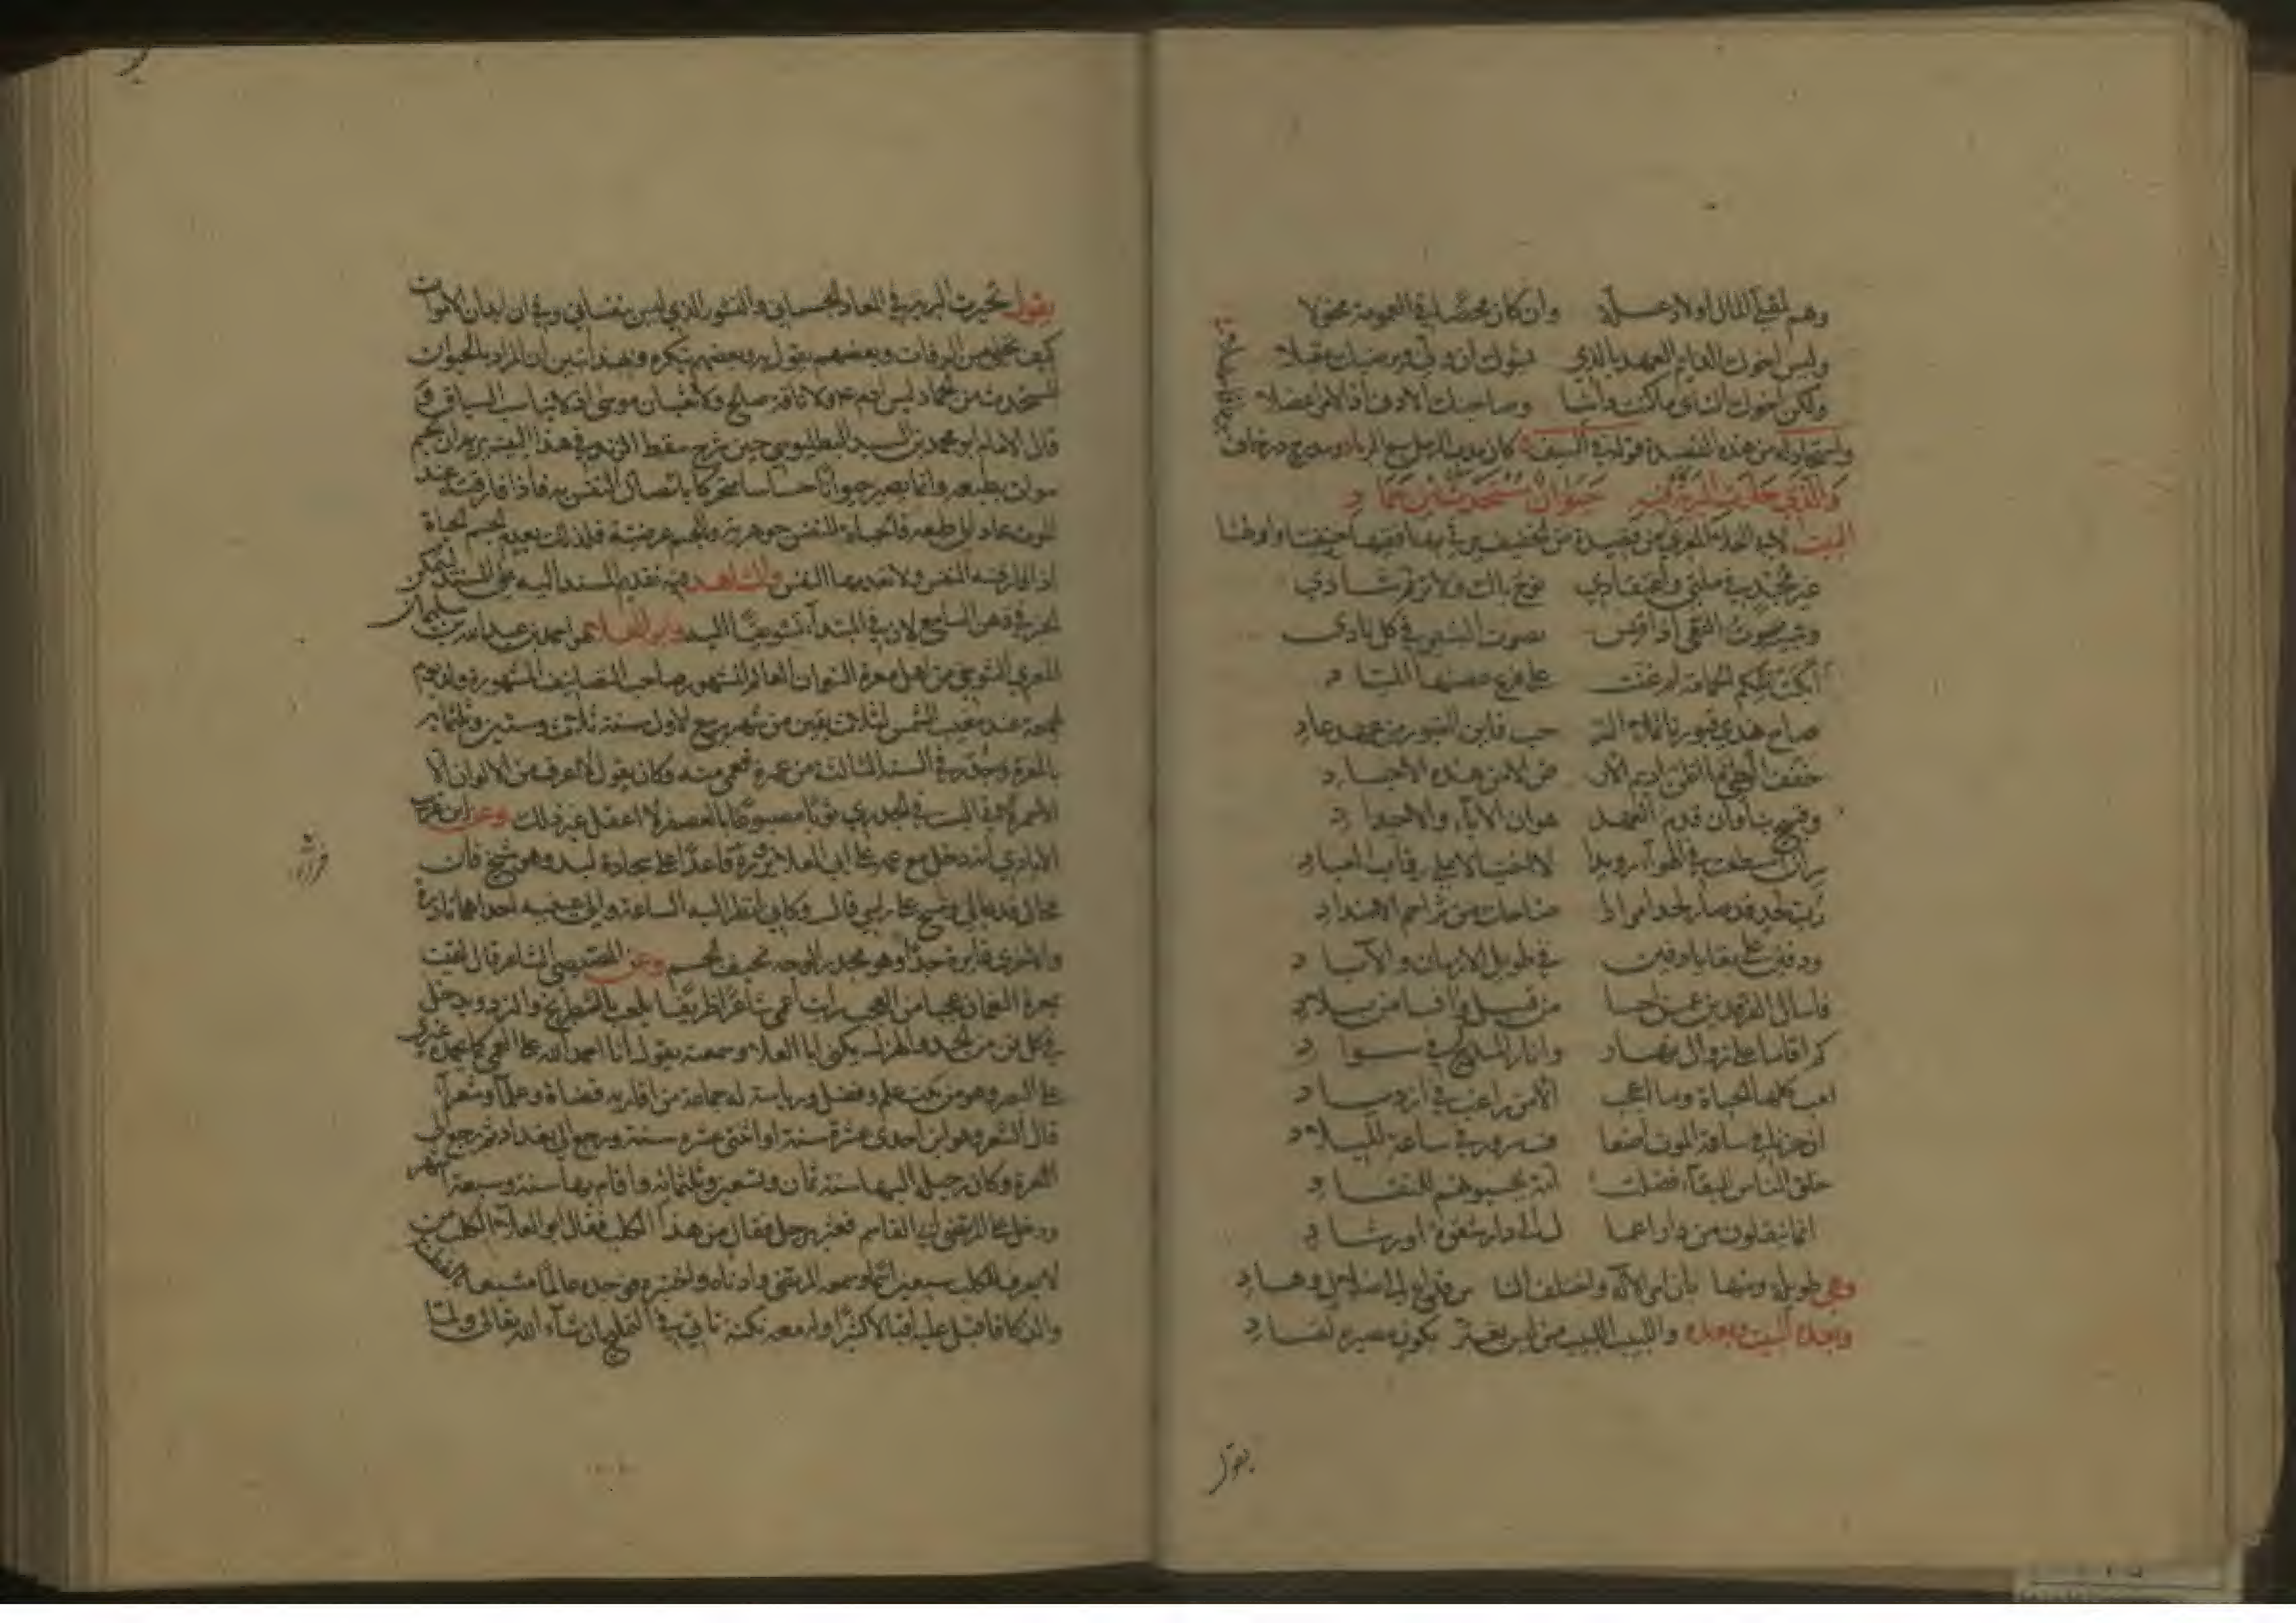 وهم لمقل المال أولاد علة وان كان محضا في العمومة مخولا
وليس اخوك الدائم العهد بالذي يسوك ان ولى ويرضيك مقبلا
ولكن اخوك الناي ما كنت آمنا وصاحبك الادنى اذا الامر اعضلا
كان مديد الرجل مع المرباد
والذي حارت البرية فيه حيوان مستحدث من جماد
البيت لابي العلاء المعري من قصيدة من الخفيف يرثي بها فقيها حنفيا واولها
غير مجد في ملتي واعتقادي نوح باك ولا ترنم شادي
وشبيه صوت النعي اذا قيس بصوت البشير في كل نادي
ابكت تلكم الحمامة ام غنت على فرع غصنها المياد
صاح هذي قبورنا تملا الر حب فاين القبور من عهد عاد
خفف الوطي ما اظن اديم الار ض الا من هذه الاجساد
وقبيح بنا وان قدم العهد هوان الاباء والاجداد
سر ان اسطعت في الهواء رويدا لا اختيالا على رفات العباد
رب لحد قد صار لحدا مرارا ضاحك من تزاحم الاضداد
ودفين على بقايا دفين في طويل الازمان والآباد
فاسال الفرقدين عمن احسا من قبيل وآنسا من بلاد
كم اقاما على زوال نهار وانارا لمدلج في سواد
تعب كلها الحياة وما اعجب الا من راغب في ازدياد
ان حزنا في ساعة الموت اضعا ف سرور في ساعة الميلاد
خلق الناس للبقاء فضلت امة يحسبونهم للنفاد
انما ينقلون من دار اعما ل الى دار شقوة او رشاد
وهي طويلة ومنها بان امر الاله واختلف النا س فداع الى ضلال وهاد
وبعده البيت وبعده واللبيب اللبيب من ليس يغتر بكون مصيره لفساد
يقول
يقول تحيرت البرية في المعاد الجسماني والنشور الذي ليس بنفساني وفي ان ابدان الاموات
كيف تحيى من الرفات وبعضهم يقول به وبعضهم ينكره وبهذا تبين ان المراد بالحيوان
المستحدث من الجماد ليس ادم ع م ولا ناقة صالح ولا ثعبان موسى اذ لا يناسب السياق
قال الامام ابو محمد بن السيد البطليوسي حين شرح سقط الزند في هذا البيت يريد ان الجسم
موات بطبعه وانما يصير حيوانا حساسا متحركا باتصال النفس به فاذا فارقته عند
الموت عاد الى طبعه فالحياة للنفس جوهرية وللجسم عرضية فلذلك يعدم الجسم الحياة
اذا فارقته النفس ولا تعدمها النفس والشاهد فيه تقديم المسند اليه على المسند لتمكن
الخبر في ذهن السامع لان في المبتدأ تشويقا اليه وابو العلاء هو احمد بن عبد الله بن سليمان
المعري التنوخي من اهل معرة النعمان العالم المشهور صاحب التصانيف المشهورة ولد يوم
الجمعة عند مغيب الشمس لثلاث بقين من شهر ربيع الاول سنة ثلاث وستين وثلثمائه
بالمعرة وجدر في السنة الثالثة من عمره فعمي منه وكان يقول لا اعرف من الالوان الا
الاحمر لاني البست في الجدري ثوبا مصبوغا بالعصفر لا اعقل غير ذلك وعن ابن غريب
الايادي انه دخل مع عمه على ابي العلاء يزوره فرآه قاعدا على سجادة لبد وهو شيخ فان
قال فدعا لي ومسح على راسي قال وكاني انظر اليه الساعة والى عينيه احداهما نادرة
والاخرى غايرة جدا وهو مجدر الوجه نحيف الجسم وعن المصيصي الشاعر قال لقيت
بمعرة النعمان عجبا من العجب رايت اعمى شاعرا ظريفا يلعب بالشطرنج والنرد ويدخل
في كل فن من الجد والهزل يكنى ابا العلاء وسمعته يقول انا احمد الله على العمى كما يحمده غيري
على البصر وهو من بيت علم وفضل ورياسة له جماعة من اقاربه قضاة وعلماء وشعراء
قال الشعر وهو ابن احدى عشرة سنة او اثنتي عشره سنة ورحل الى بغداد ثم رجع الى
المعرة وكان رحيله اليها سنة ثمان وتسعين وثلثمائه واقام بها سنة وسبعة اشهر
ودخل على المرتضى ابي القاسم فعثر برجل فقال من هذا الكلب فقال ابو العلاء الكلب من
لا يعرف للكلب سبعين اسما وسمعه المرتضى وادناه واختبره فوجده عالما مشبعا بالفطنة
والذكاء فاقبل عليه اقبالا كثيرا وله معه نكتة تاتي في التلميح ان شاء الله تعالى ولما